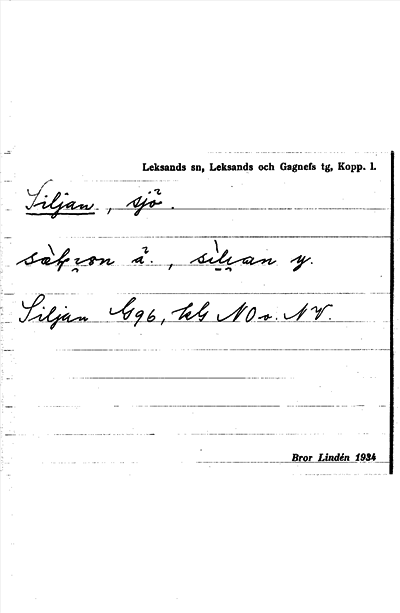 Leksands sn, Leksands och Gagnefs tg, Kopp. l.
Siljan, sjö.
å., y.
Siljan G96, kG NO o. NV.
Bror Lindén 1934